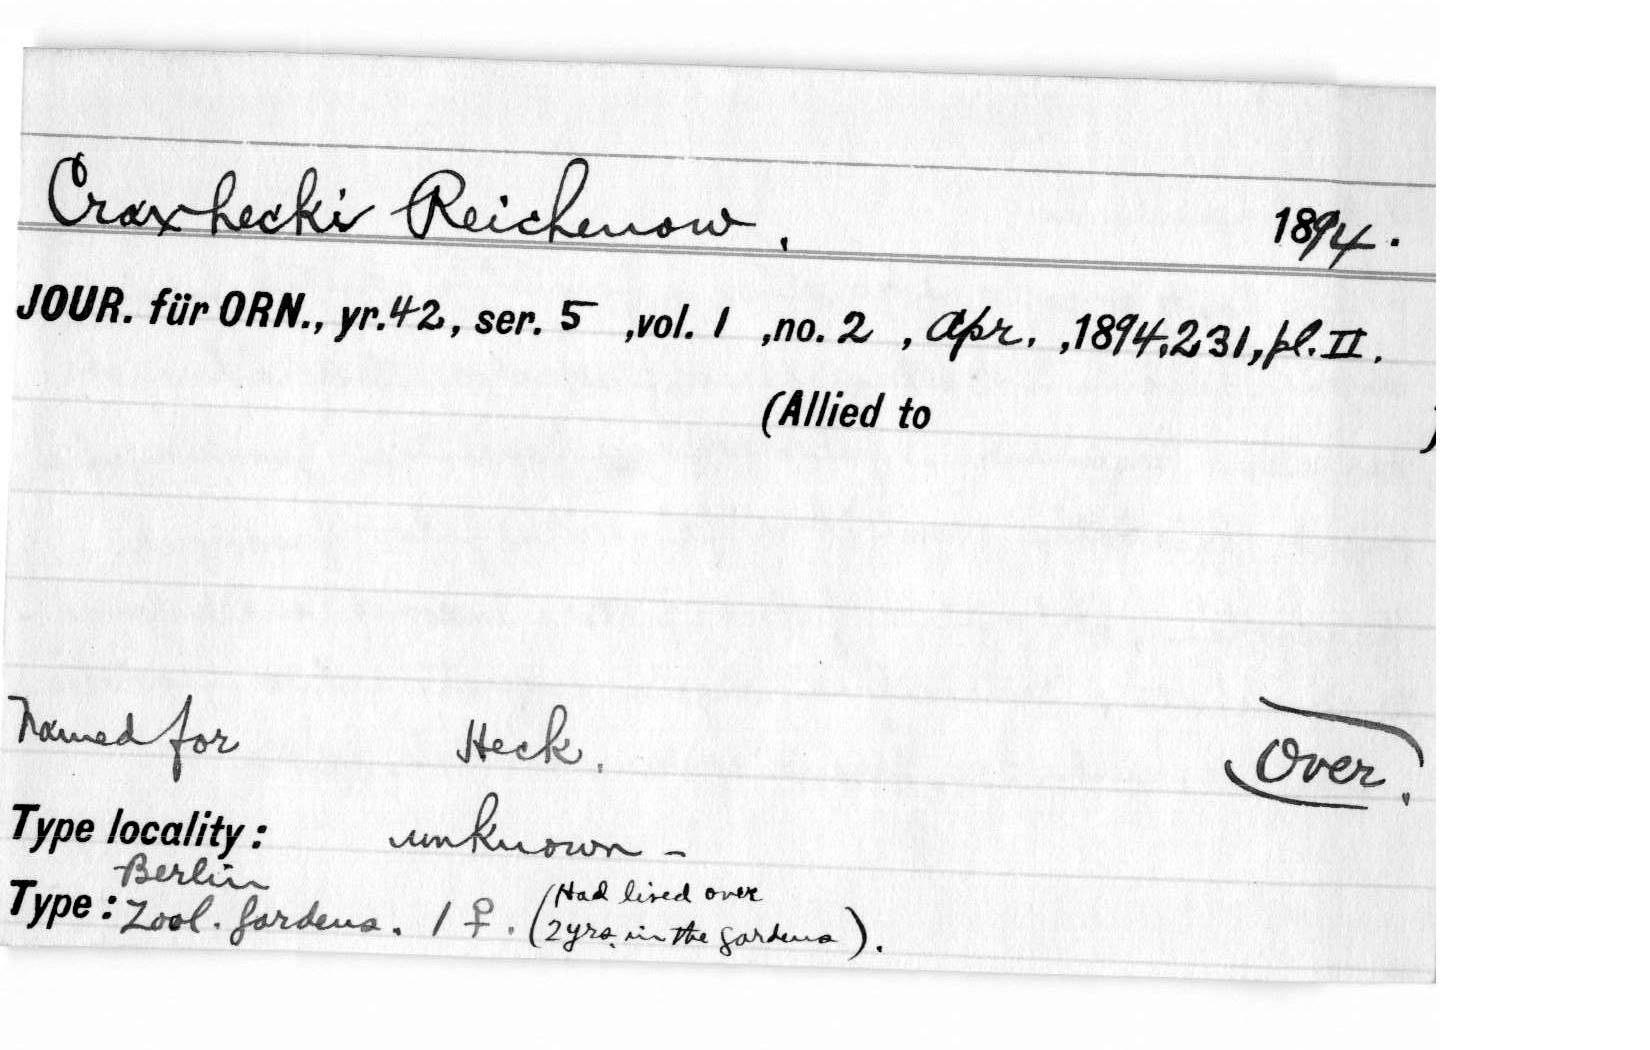 Crax hecki Reichenow. 1894.
JOUR. für ORN., yr. 42, ser. 5 , vol. 1 , no. 2 , Apr. , 1894, 231, pl. II.
(Allied to )
Named for Heck. Over.
Type locality: unknown -
Berlin
Type: Zool. Gardens. 1 ♀. (Had lived over
2 yrs. in the gardens).